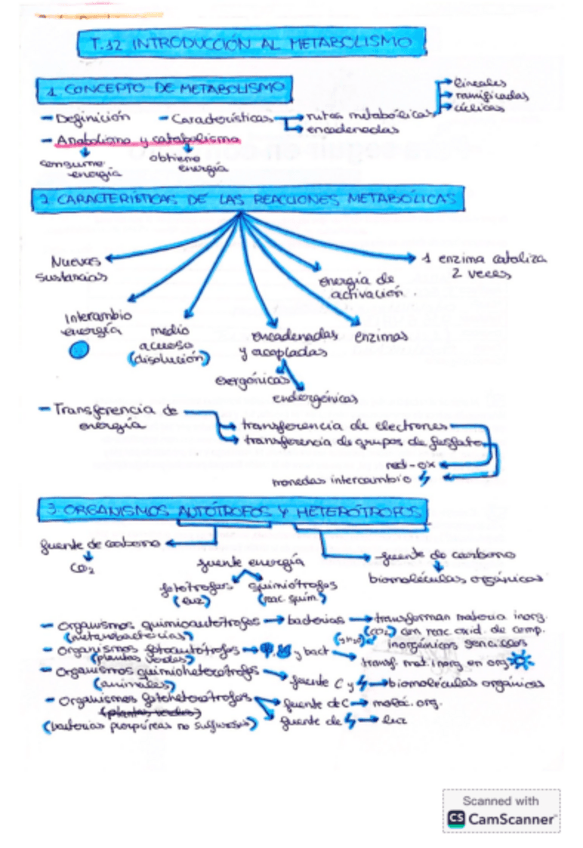 T.12 INTRODUCCIÓN AL METABOLISMO
1 CONCEPTO DE METABOLISMO
- Definición - Características → rutas metabólicas → lineales
→ ramificadas
→ cíclicas
→ encadenadas
- Anabolismo y catabolismo
consume energía
obtiene energía
2 CARACTERÍSTICAS DE LAS REACCIONES METABÓLICAS
Nuevas sustancias
Intercambio energía
medio acuoso (disolución)
encadenadas y acopladas
exergónicas
endergónicas
enzimas
energía de activación
1 enzima cataliza 2 veces
- Transferencia de energía → transferencia de electrones
→ transferencia de grupos de fosfato
red-ox
monedas intercambio
3 ORGANISMOS AUTÓTROFOS Y HETERÓTROFOS
fuente de carbono
CO2
fuente energía
fotótrofos (luz)
quimiótrofos (reac. quím.)
fuente de carbono
biomoléculas orgánicas
- Organismos quimioautótrofos → bacterias → transforman materia inorg.
(CO2) con reac. oxid. de comp.
inorgánicos sencillos
- Organismos fotoautótrofos → y bact → transf. mat. inorg en org
(plantas verdes)
- Organismos quimioheterótrofos → fuente C y → biomoléculas orgánicas
(animales)
- Organismos fotoheterótrofos → fuente de C → moléc. org.
(plantas verdes)
(bacterias purpúreas no sulfurosas) fuente de → luz
Scanned with
CS CamScanner